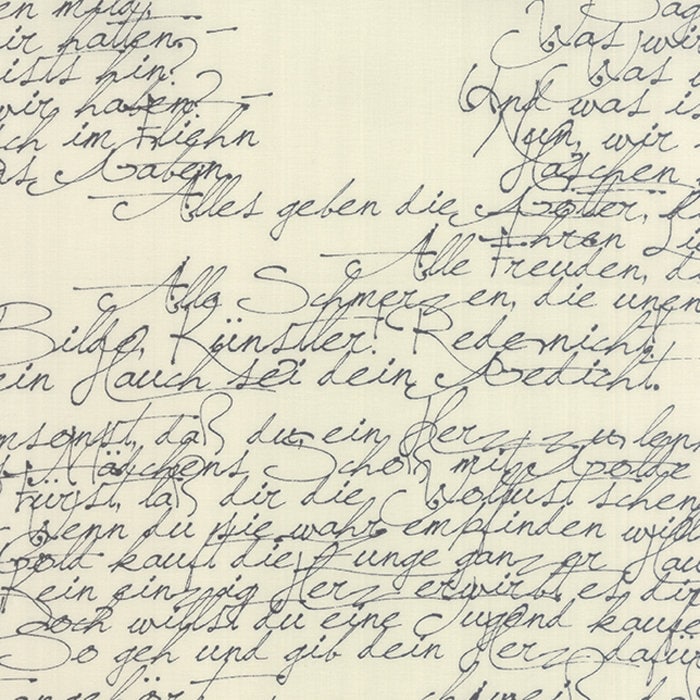 en
ir hatten Was wir
ists hin? Was
wir haben? Und was is
ich im Fliehn Nun, wir
as Gaben, Haschen
Alles geben die Götter, d
Ihren Li
Alle Freuden, d
Alle Schmerzen, die unen
Bilde, Künstler! Rede nicht!
ein Hauch sei dein Gedicht.
msonst, daß du, ein Herz zu lenk
Mädchens Schoß mit Golde
Fürst, laß dir die Wollust schen
Wenn du sie wahr empfinden will
Gold kauft die Zunge ganzer Hau
Kein einzig Herz erwirbt es dir
Doch willst du eine Tugend kaufe
So geh und gib dein Herz dafür